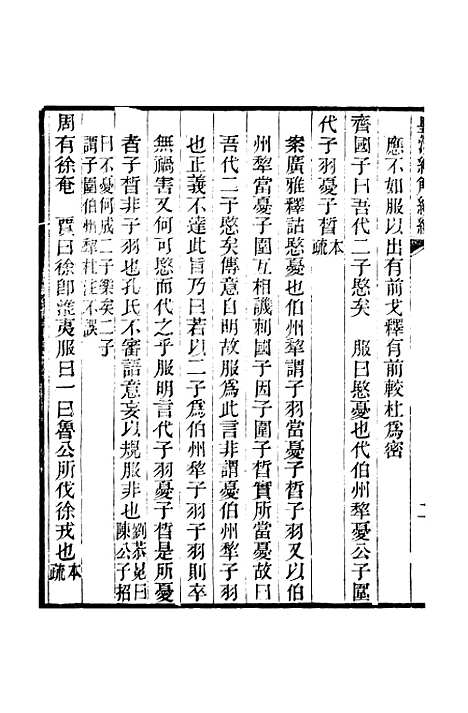 應不如服以出有前戈釋有前較杜爲密
齊國子曰吾代二子愍矣　服曰愍憂也代伯州犂憂公子圍
代子羽憂子晳本疏
案廣雅釋詁愍憂也伯州犂謂子羽當憂子晳子羽又以伯
州犂當憂子圍互相譏刺國子因子圍子晳實所當憂故曰
吾代二子愍矣傳意自明故服爲此言非謂憂伯州犂子羽
也正義不達此旨乃曰若以二子爲伯州犂子羽子羽則卒
無禍害又何可愍而代之乎服明言代子羽憂子晳是所憂
者子晳非子羽也孔氏不審語意妄以規服非也劉恭冕曰陳公子招
曰不憂何成二子樂矣二子謂子圍伯州犂杜注不誤
周有徐奄　賈曰徐卽淮夷服曰一曰魯公所伐徐戎也本疏
二